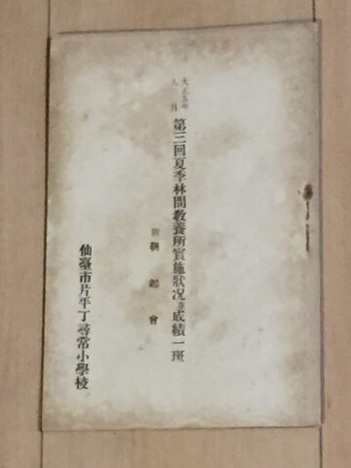 大正九年
八月
第三回夏季林間敎養所實施狀况並成績一斑
附 朝起會
仙臺市片平丁尋常小學校